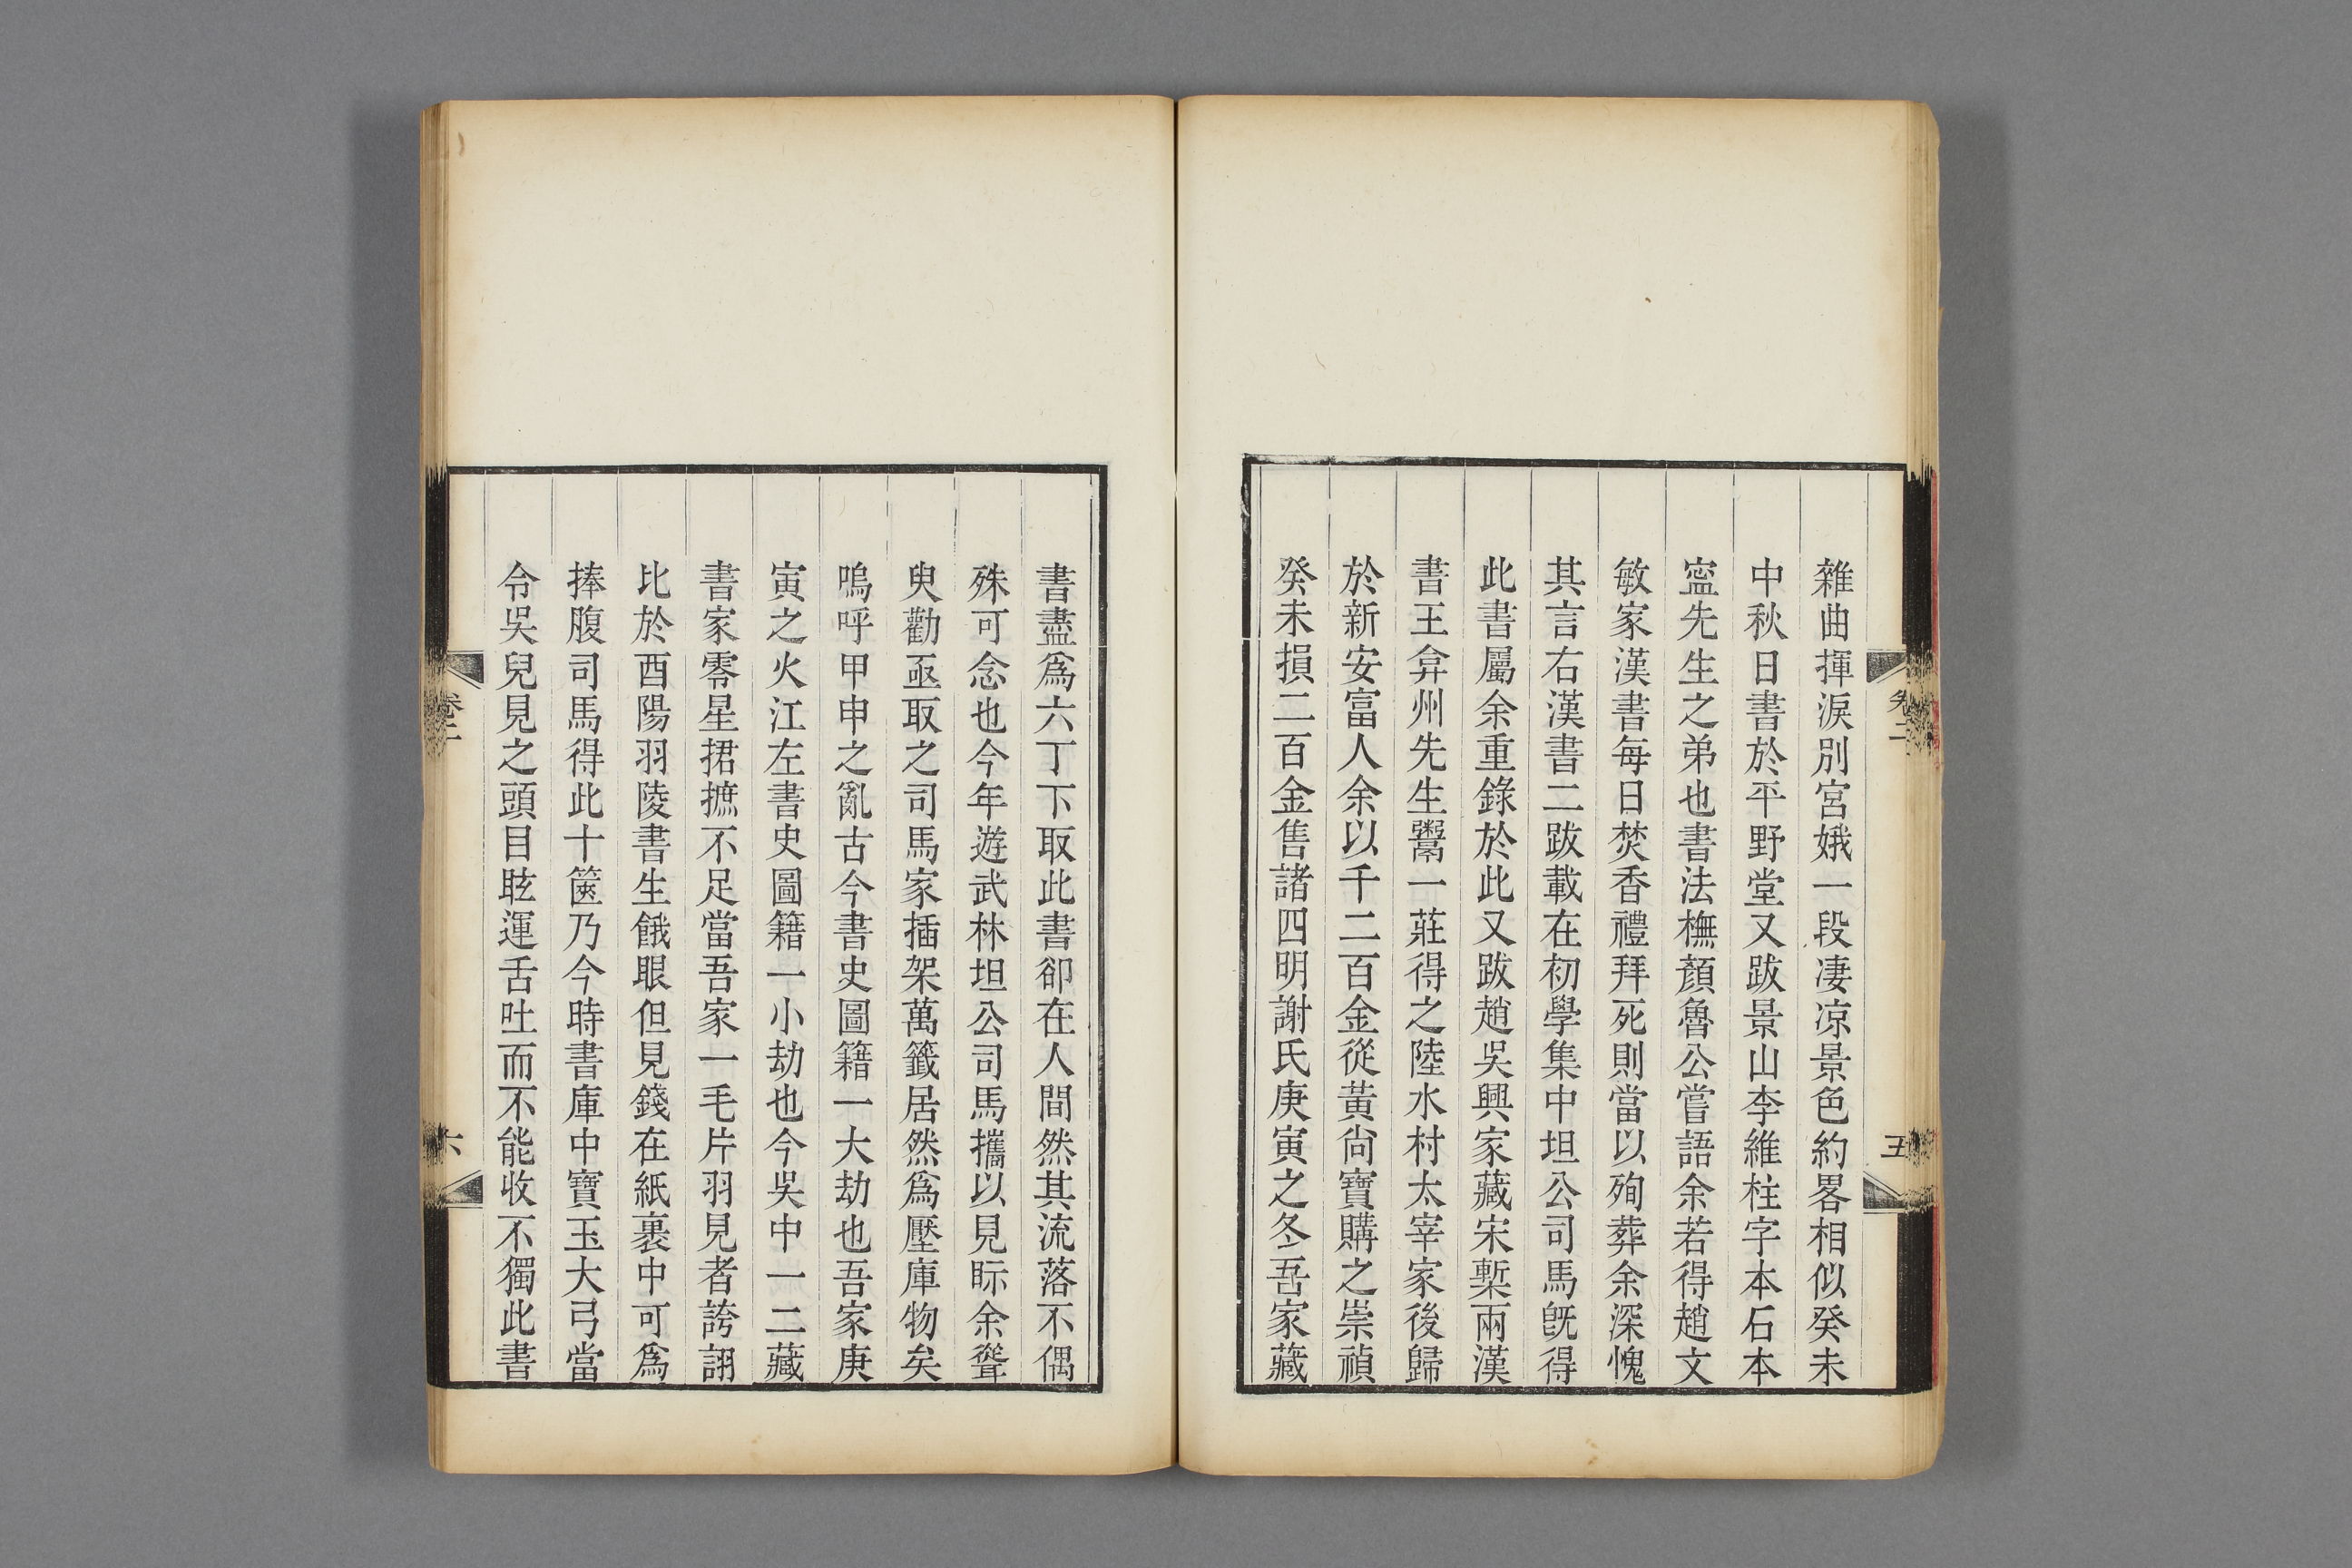 雜曲揮淚別宮娥一段淒涼景色約畧相似癸未
中秋日書於平野堂又跋景山李維柱字本石本
寍先生之弟也書法橅顏魯公嘗語余若得趙文
敏家漢書每日焚香禮拜死則當以殉葬余深愧
其言右漢書二跋載在初學集中坦公司馬旣得
此書屬余重錄於此又跋趙吳興家藏宋槧兩漢
書王弇州先生鬻一莊得之陸水村太宰家後歸
於新安富人余以千二百金從黃尙寶購之崇禎
癸未損二百金售諸四明謝氏庚寅之冬吾家藏
卷二
五
書盡爲六丁下取此書卻在人間然其流落不偶
殊可念也今年遊武林坦公司馬攜以見眎余聳
臾勸亟取之司馬家插架萬籤居然爲壓庫物矣
嗚呼甲申之亂古今書史圖籍一大劫也吾家庚
寅之火江左書史圖籍一小劫也今吳中一二藏
書家零星捃摭不足當吾家一毛片羽見者誇詡
比於酉陽羽陵書生餓眼但見錢在紙裹中可爲
捧腹司馬得此十篋乃今時書庫中寶玉大弓當
令吳兒見之頭目眩運舌吐而不能收不獨此書
卷二
六